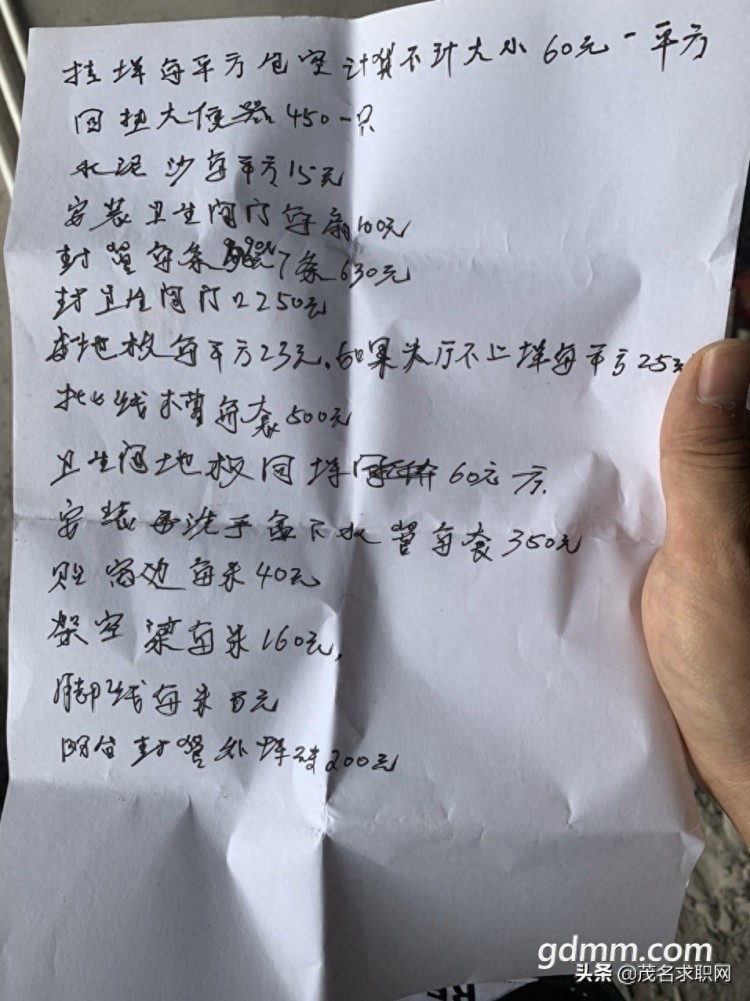 挂埲每平方包空计算不计大小60元一平方
回垫大便器450一只
水泥沙每平方15元
安装卫生间门每扇100元
封管每条90元7条630元
封卫生间门口250元
地板每平方23元.如果大厅不上埲每平方25元
批线槽每套500元
卫生间地板回埲60元方.
安装洗手盆下水管每套350元
贴窗边每米40元
架空梁每米160元,
脚线每米8元
阳台封管外埲200元
gdmm.com
头条@茂名求职网